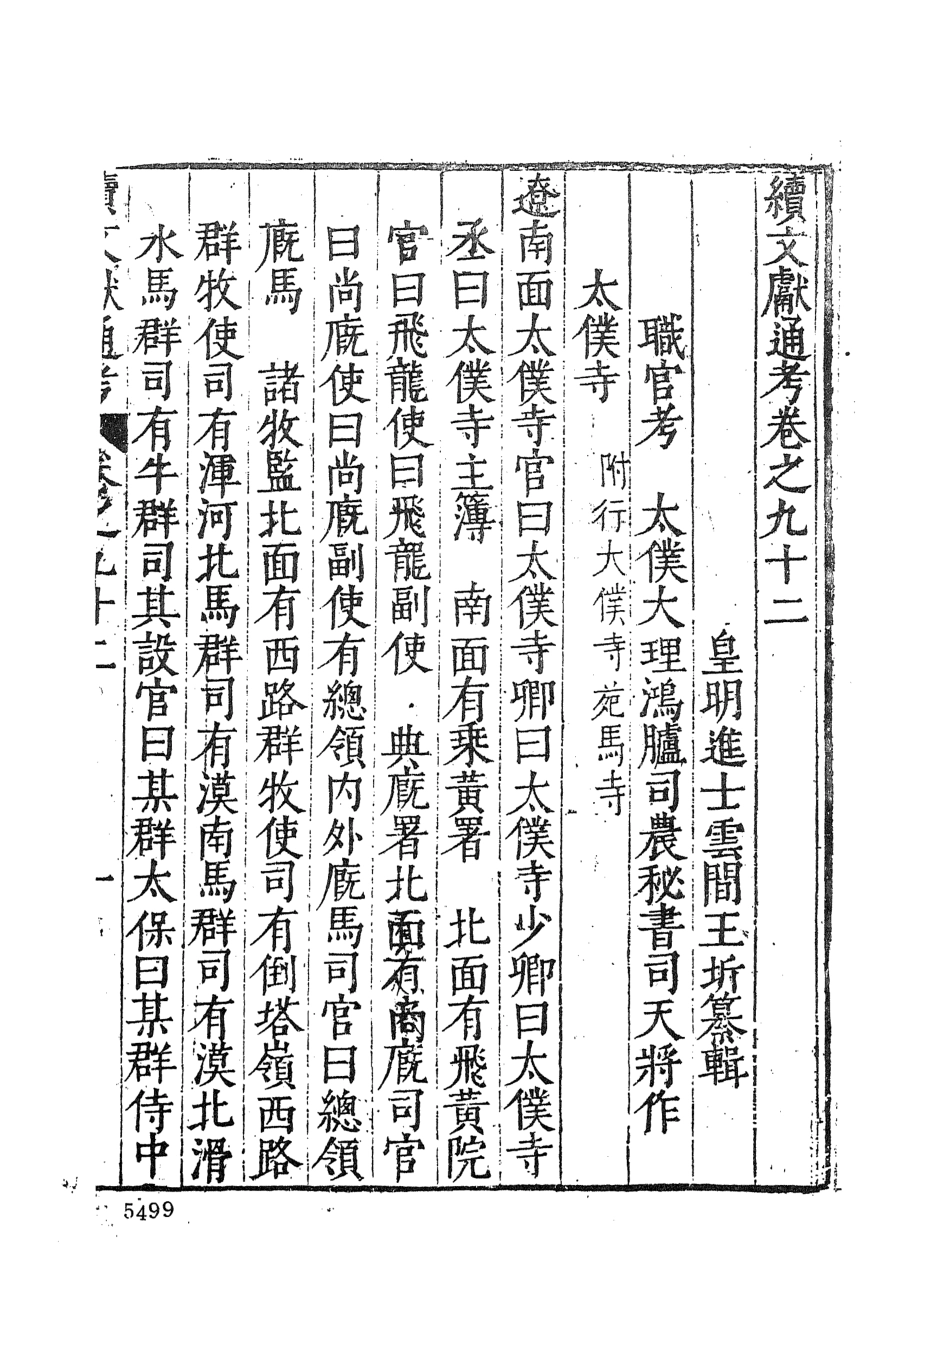 續文獻通考卷之九十二
皇明進士雲間王圻纂輯
職官考　太僕大理鴻臚司農秘書司天將作
太僕寺　附行太僕寺苑馬寺
遼南面太僕寺官曰太僕寺卿曰太僕寺少卿曰太僕寺
丞曰太僕寺主簿　南面有乘黃署　北面有飛黃院
官曰飛龍使曰飛龍副使　典廐署北面有尚廐司官
曰尚廐使曰尚廐副使有總領内外廐馬司官曰總領
廐馬　諸牧監北面有西路群牧使司有倒塔嶺西路
群牧使司有渾河北馬群司有漠南馬群司有漠北滑
水馬群司有牛群司其設官曰某群太保曰某群侍中
續文獻通考　卷之九十二　一
5499